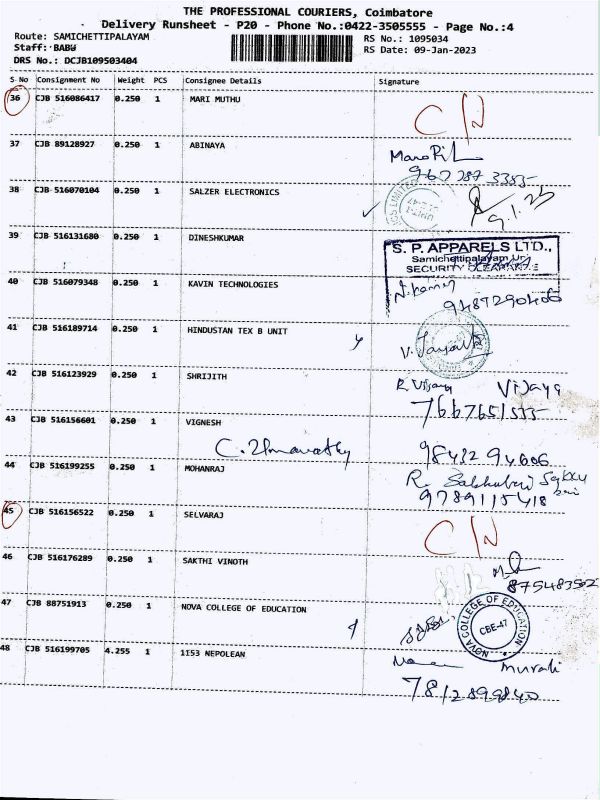 THE PROFESSIONAL COURIERS, Coimbatore
Delivery Runsheet - P20 - Phone No.:0422-3505555 - Page No.:4
Route: SAMICHETTIPALAYAM RS No.: 1095034
Staff: BABU RS Date: 09-Jan-2023
DRS No.: DCJB109503404
S No Consignment No Weight PCS Consignee Details Signature
36 CJB 516086417 0.250 1 MARI MUTHU C/N
37 CJB 89128927 0.250 1 ABINAYA
38 CJB 516070104 0.250 1 SALZER ELECTRONICS 9.1.23
39 CJB 516131680 0.250 1 DINESHKUMAR
S. P. APPARELS LTD.,
Samichettipalayam
SECURITY CLEARANCE
40 CJB 516079348 0.250 1 KAVIN TECHNOLOGIES
9487290406
41 CJB 516189714 0.250 1 HINDUSTAN TEX B UNIT
42 CJB 516123929 0.250 1 SHRIJITH R. Vijaya Vijaya
7667651555
43 CJB 516156601 0.250 1 VIGNESH
9843294606
44 CJB 516199255 0.250 1 MOHANRAJ
9789115418
45 CJB 516156522 0.250 1 SELVARAJ C/N
46 CJB 516176289 0.250 1 SAKTHI VINOTH
47 CJB 88751913 0.250 1 NOVA COLLEGE OF EDUCATION
NOVA COLLEGE OF EDUCATION
CBE-47
48 CJB 516199705 4.255 1 1153 NEPOLEAN Murali
7812899840